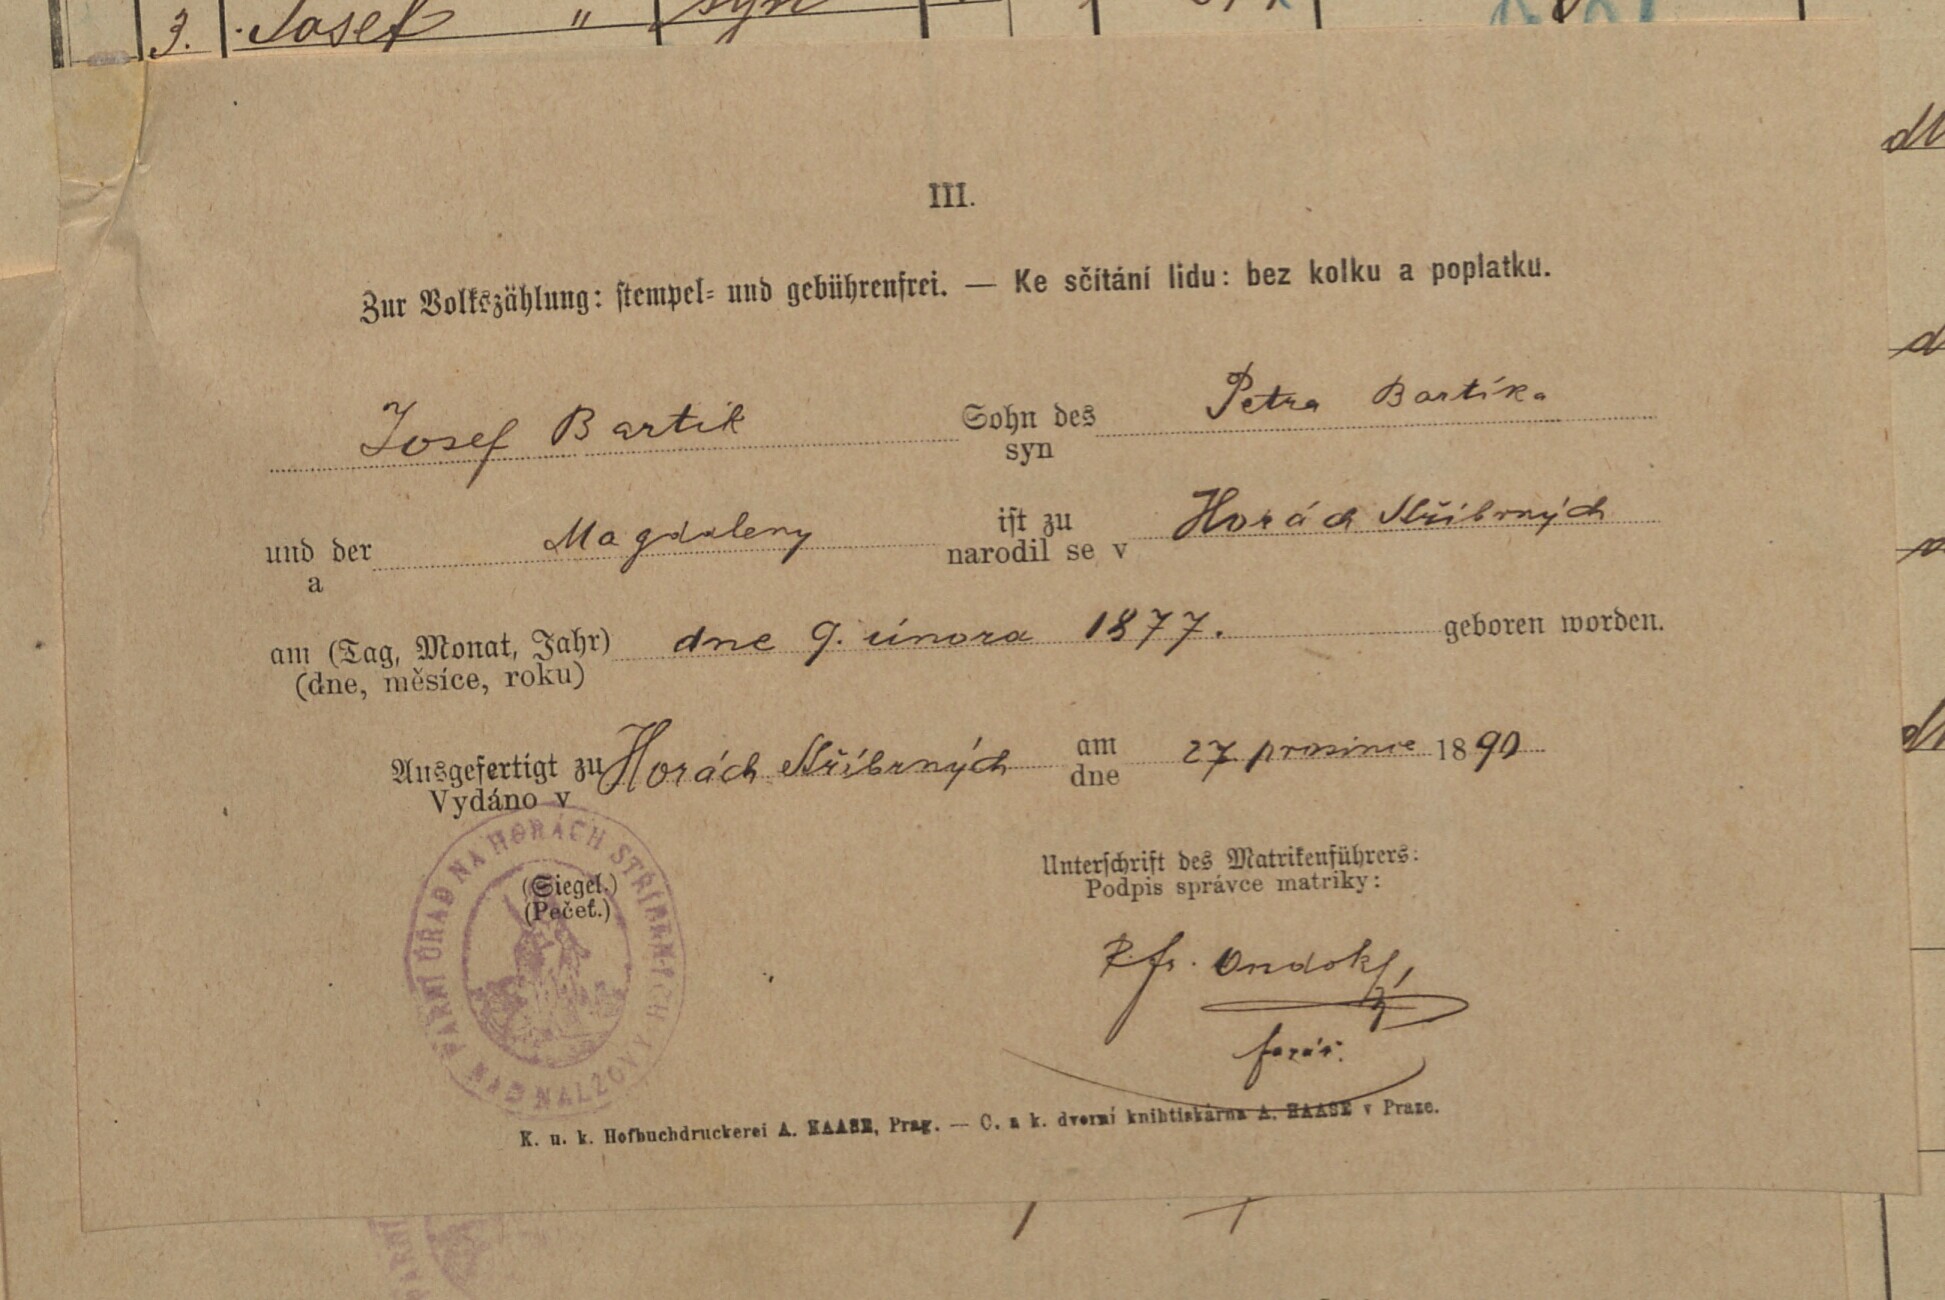 3. Josef " syn
III.
Zur Volkszählung: stempel- und gebührenfrei. — Ke sčítání lidu: bez kolku a poplatku.
Josef Bartik Sohn des Petra Bartíka
syn
und der Magdaleny ist zu Horách Stříbrných
a narodil se v
am (Tag, Monat, Jahr) dne 9. února 1877. geboren worden.
(dne, měsíce, roku)
Ausgefertigt zu Horách Stříbrných am 27 prosince 1890
Vydáno v dne
(Siegel.)
(Pečeť.)
FARNÍ ÚŘAD NA HORÁCH STŘÍBRNÝCH
NAD NALŽOVY
Unterschrift des Matrikenführers:
Podpis správce matriky:
P. Fr. farář.
K. u. k. Hofbuchdruckerei A. HAASE, Prag. — C. a k. dvorní knihtiskárna A. HAASE v Praze.